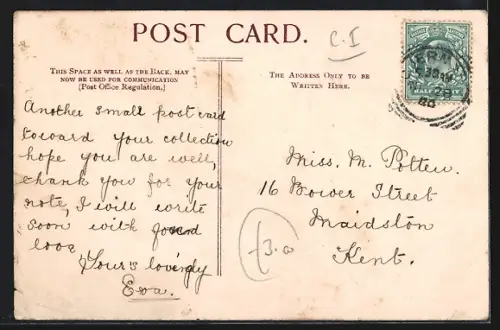 POST CARD.
C.I
THIS SPACE AS WELL AS THE BACK, MAY
NOW BE USED FOR COMMUNICATION
(Post Office Regulation.)
THE ADDRESS ONLY TO BE
WRITTEN HERE.
Another small post card
toward your collection
hope you are well,
thank you for your
note, I will write
soon with
love
Your's lovingly
Eva.
Miss. M. Potten.
16 Bower Street
Maidston
Kent.
HALF PENNY